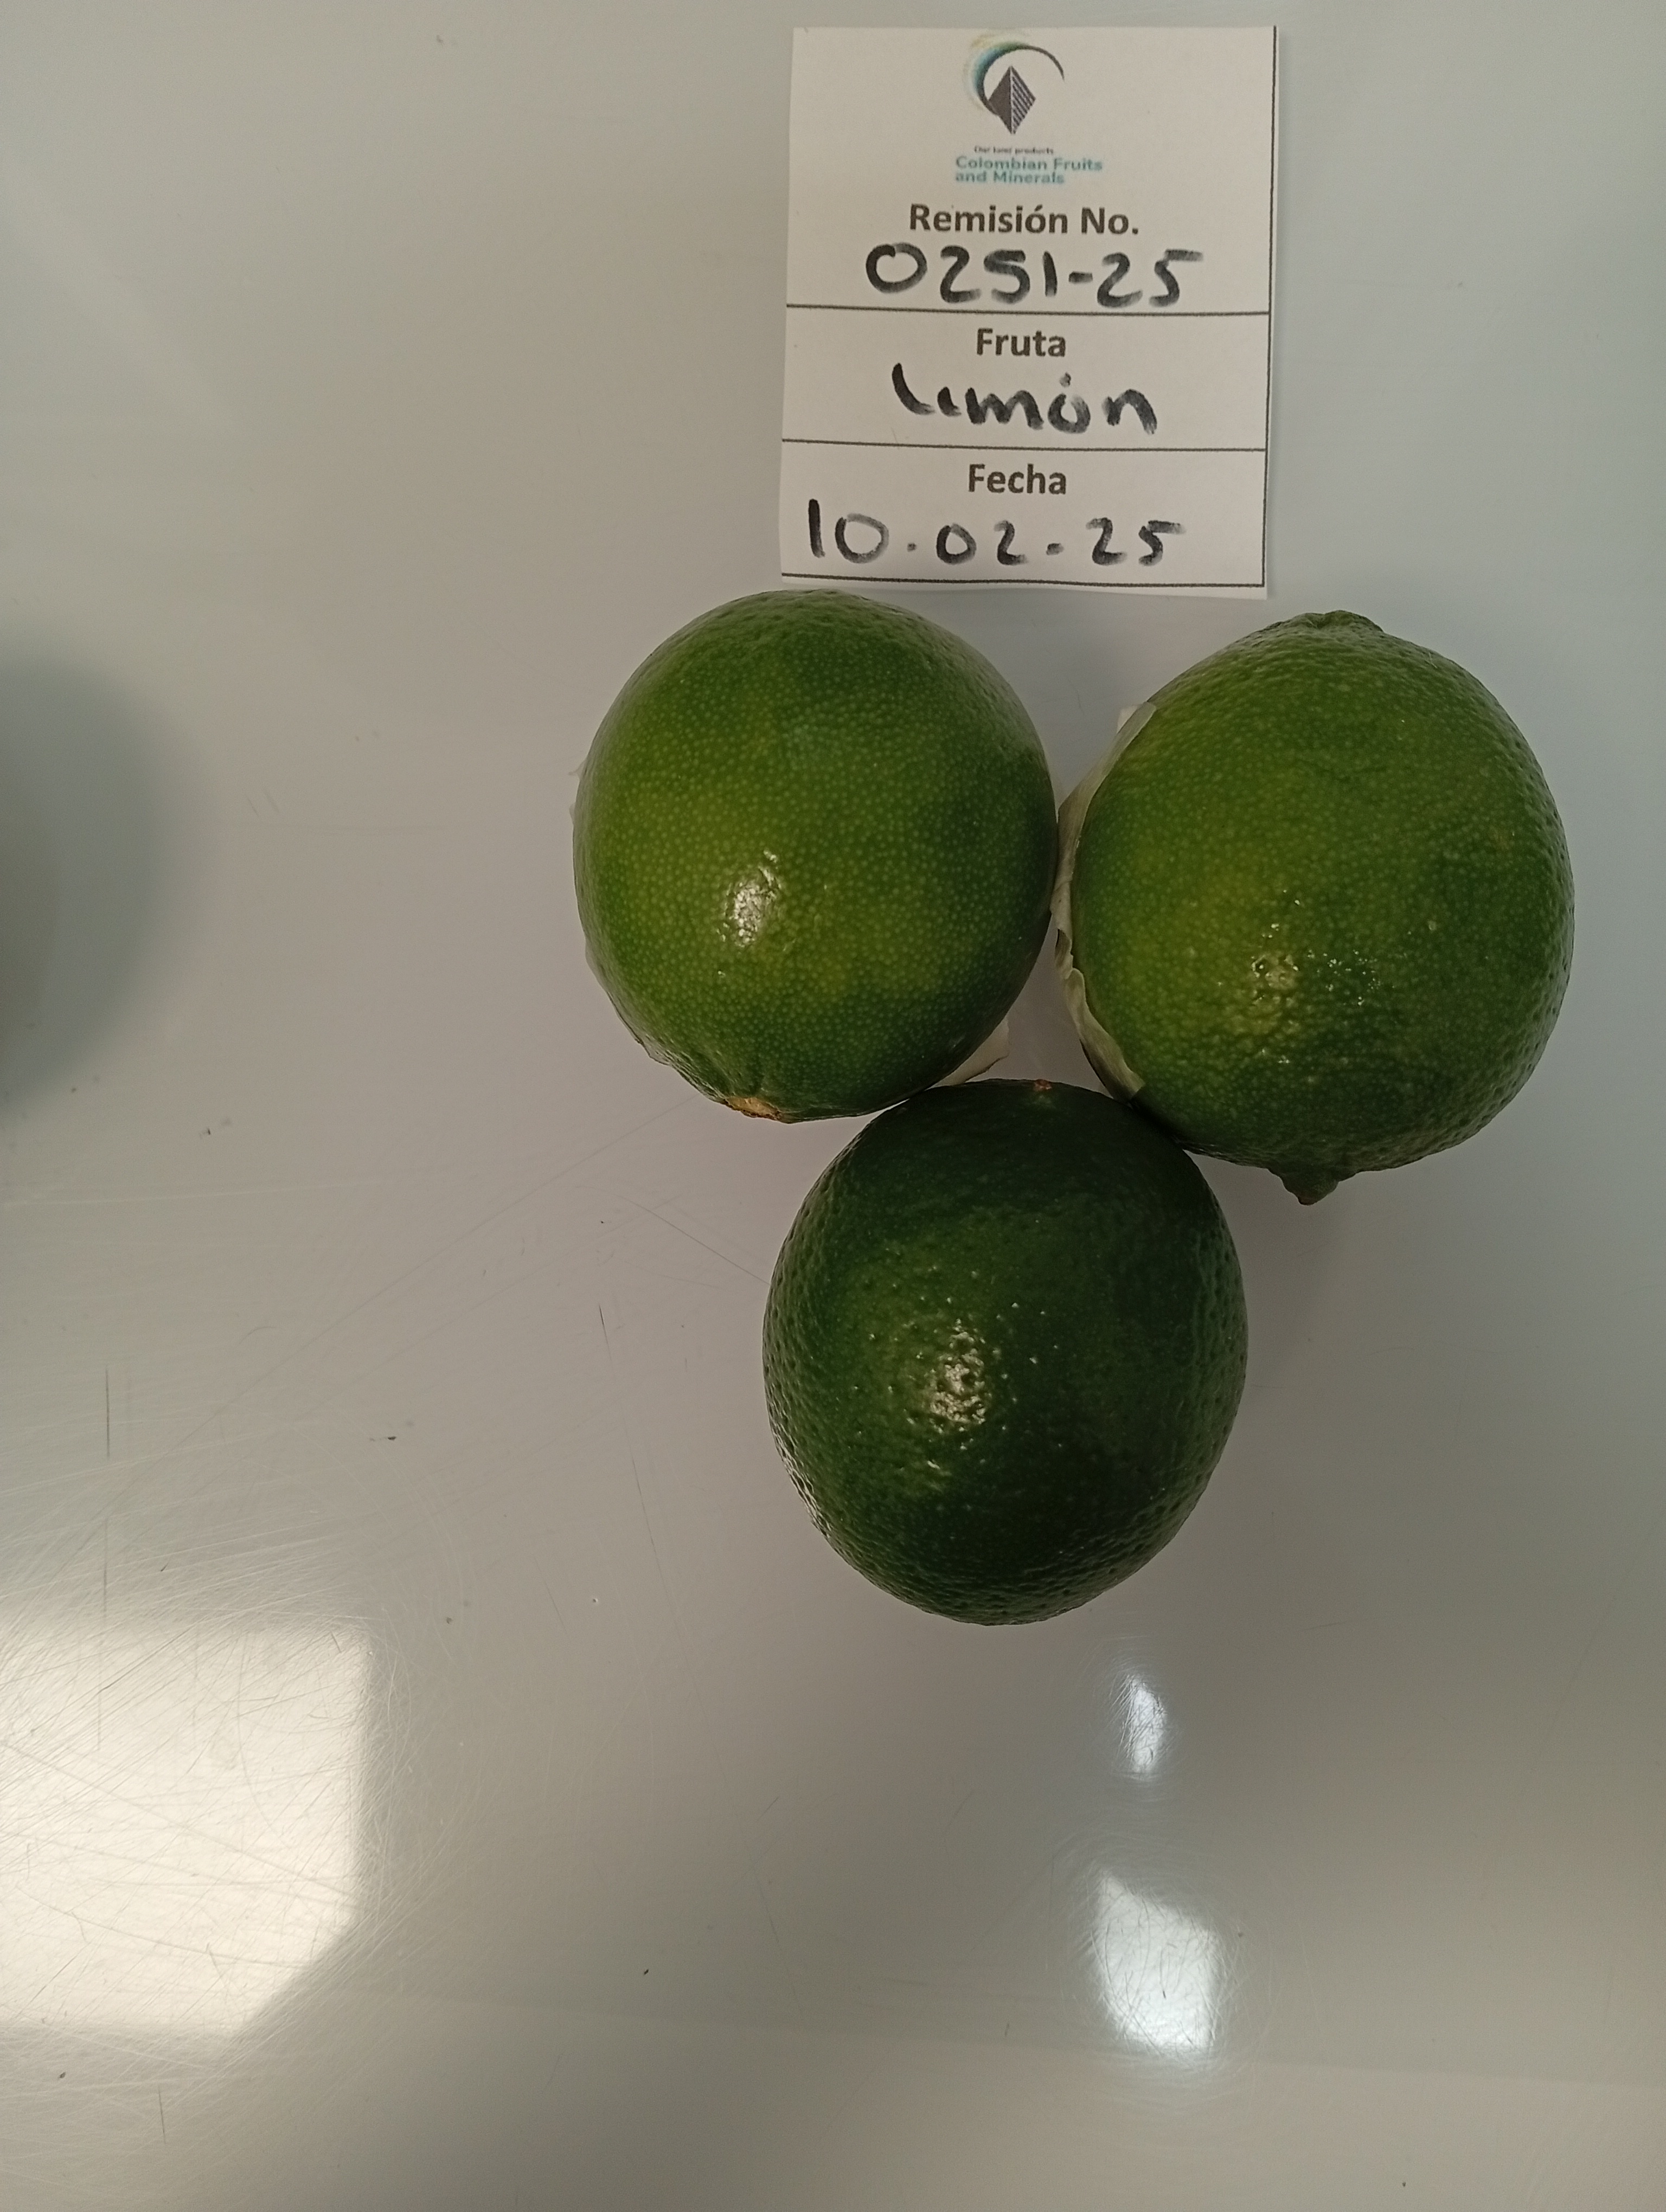 Our land products
Colombian Fruits
and Minerals
Remisión No.
0251-25
Fruta
Limón
Fecha
10.02.25